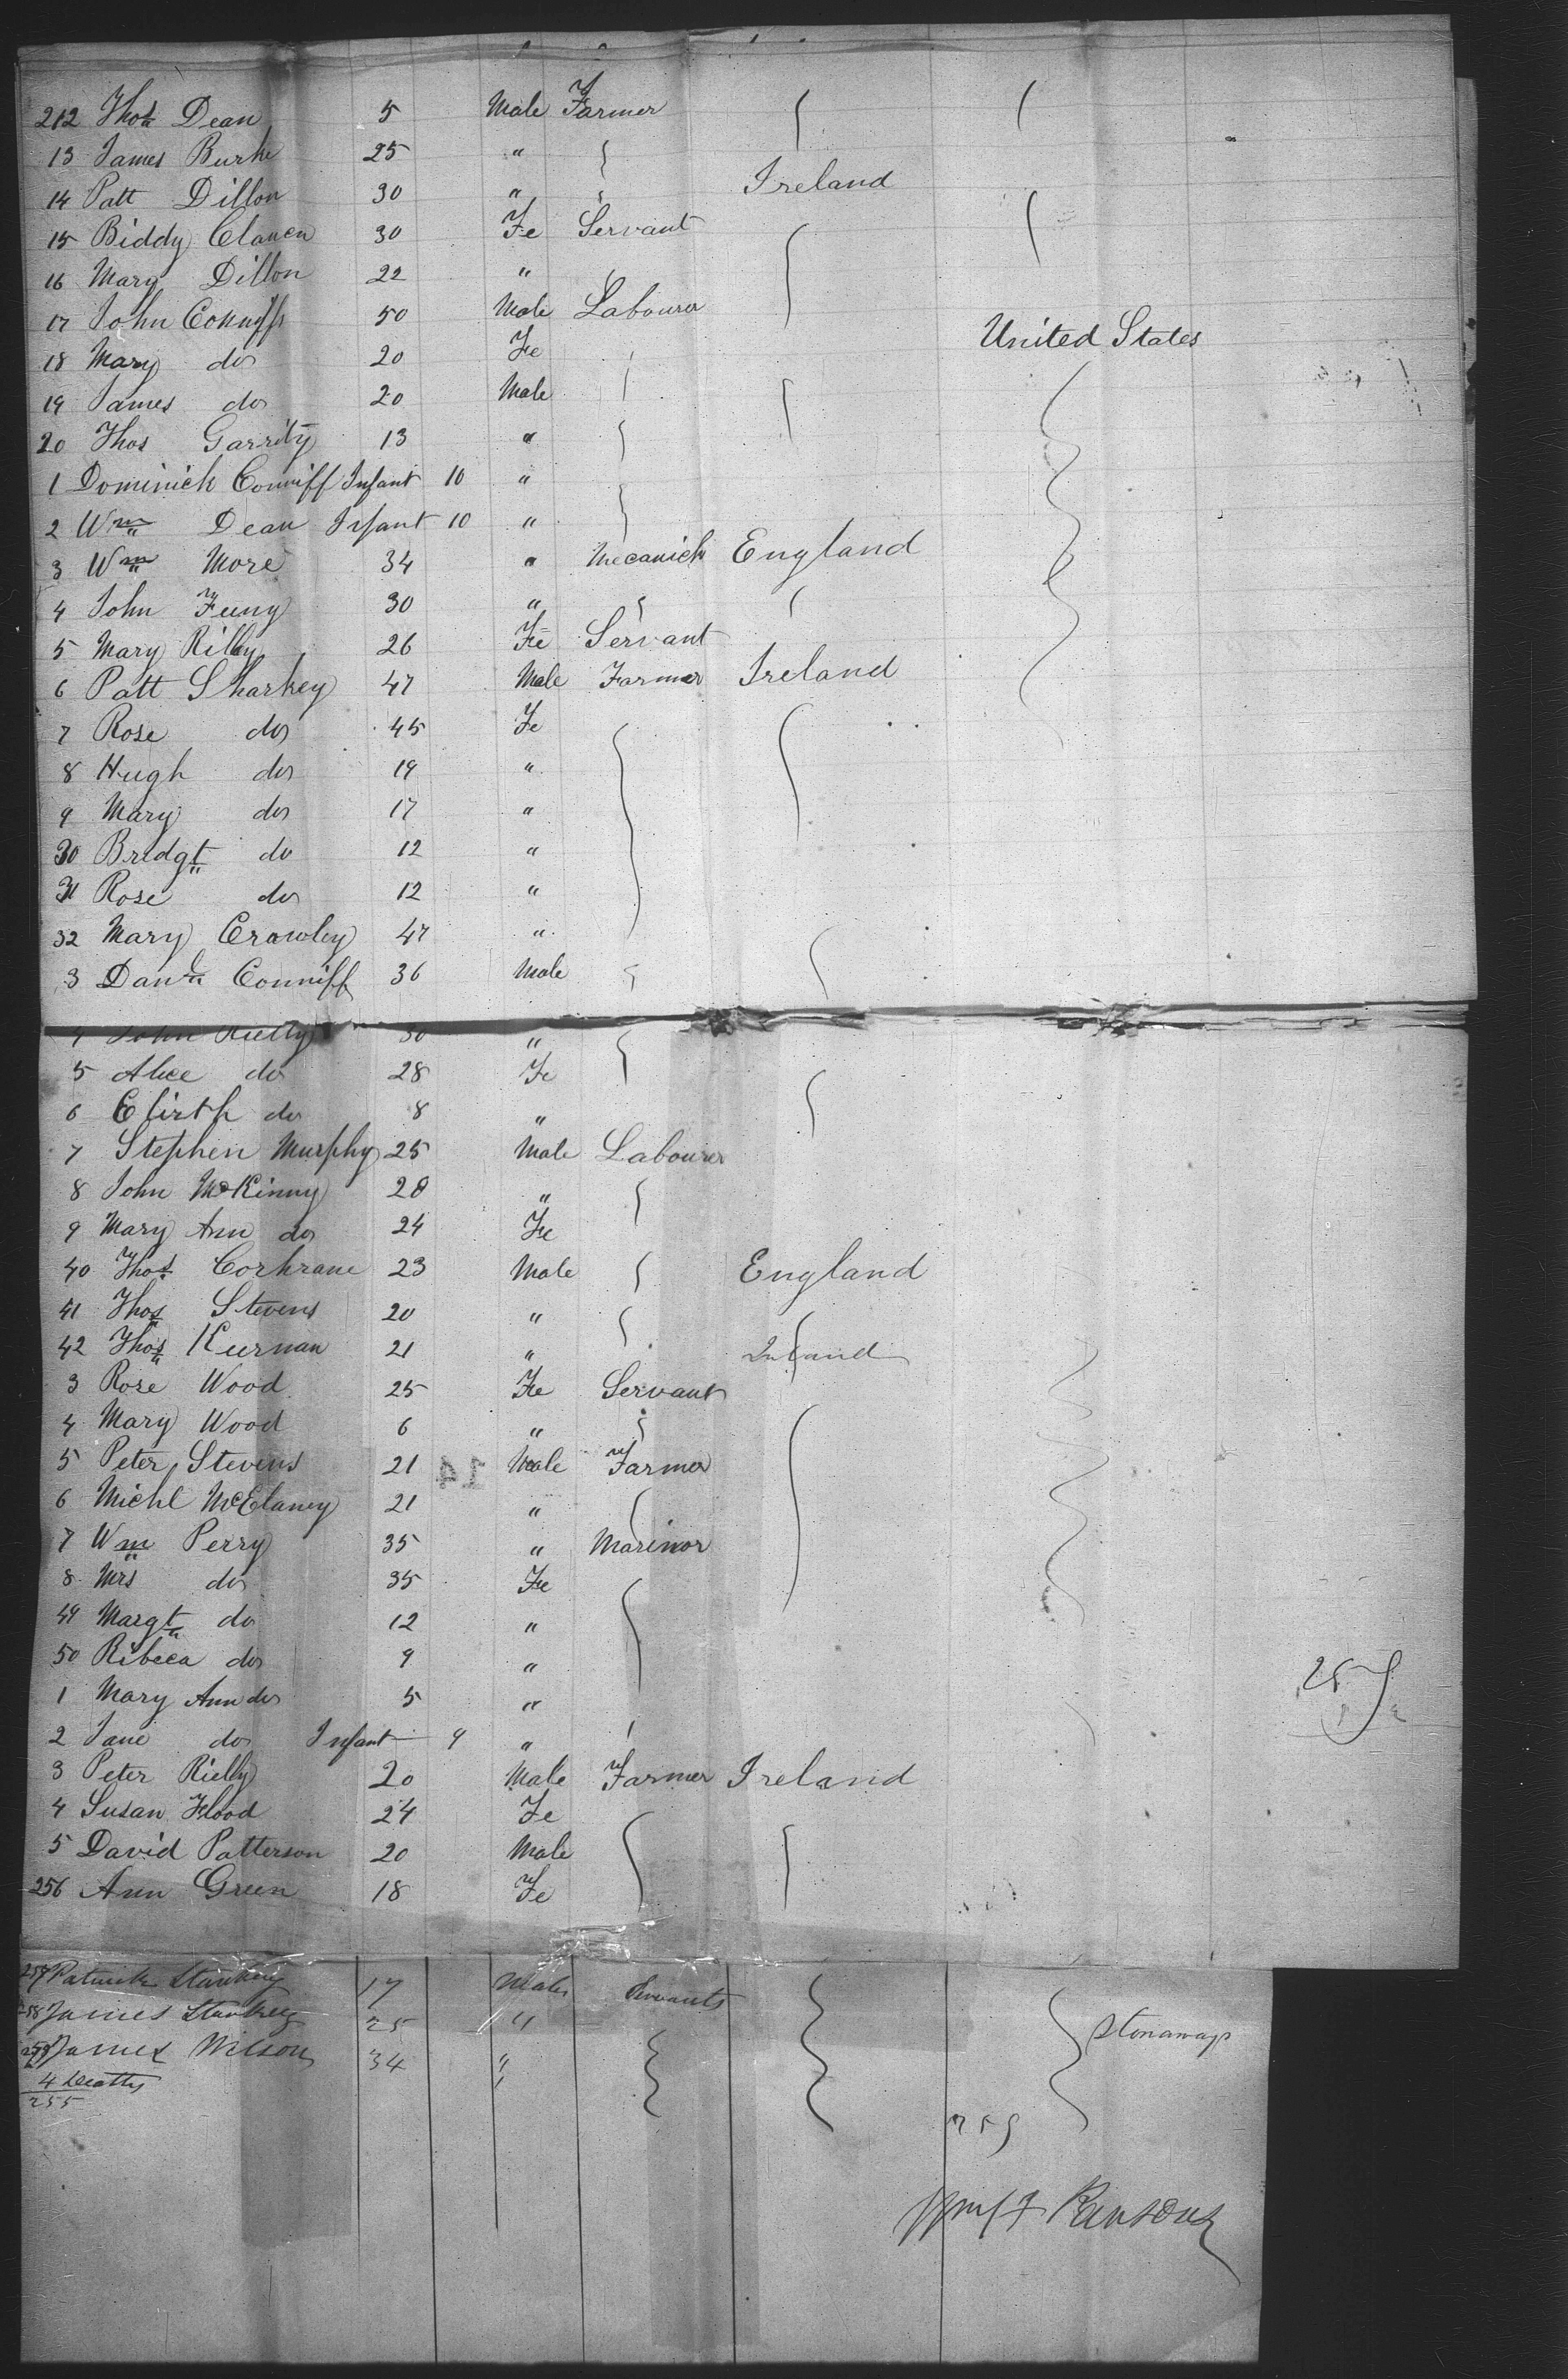 212 Thos Dean 5 Male Farmer
13 James Burke 25 "
14 Patt Dillon 30 " Ireland
15 Biddy Clancy 30 Fe Servant
16 Mary Dillon 22 "
17 John Conniff 50 Male Labourer
18 Mary do 20 Fe United States
19 James do 20 Male
20 Thos Garrity 13 "
1 Dominick Conniff Infant 10 "
2 Wm Dean Infant 10 "
3 Wm More 34 " Mecanick England
4 John Feeny 30 "
5 Mary Rilly 26 Fe Servant
6 Patt Sharkey 47 Male Farmer Ireland
7 Rose do 45 Fe
8 Hugh do 19 "
9 Mary do 17 "
30 Bridgt do 12 "
31 Rose do 12 "
32 Mary Crowley 47 "
3 Danl Conniff 36 Male
4 John Rielly 30 "
5 Alice do 28 Fe
6 Elizth do 8 "
7 Stephen Murphy 25 Male Labourer
8 John McKinny 28 "
9 Mary Ann do 24 Fe
40 Thos Corhrane 23 Male England
41 Thos Stevens 20 "
42 Thos Kurnan 21 " Ireland
3 Rose Wood 25 Fe Servant
4 Mary Wood 6 "
5 Peter Stevens 21 Male Farmer
6 Michl McElaney 21 "
7 Wm Perry 35 " Marinor
8 Mrs do 35 Fe
49 Margt do 12 "
50 Ribeca do 9 "
1 Mary Ann do 5 "
2 Jane do Infant 9 "
3 Peter Rielly 20 Male Farmer Ireland
4 Susan Flood 24 Fe
5 David Patterson 20 Male
256 Ann Green 18 Fe
257 Patrick 17 Male Servants
258 James 25 " Stonaways
259 James Wilson 34 "
4 Deaths
255
259
Parsons